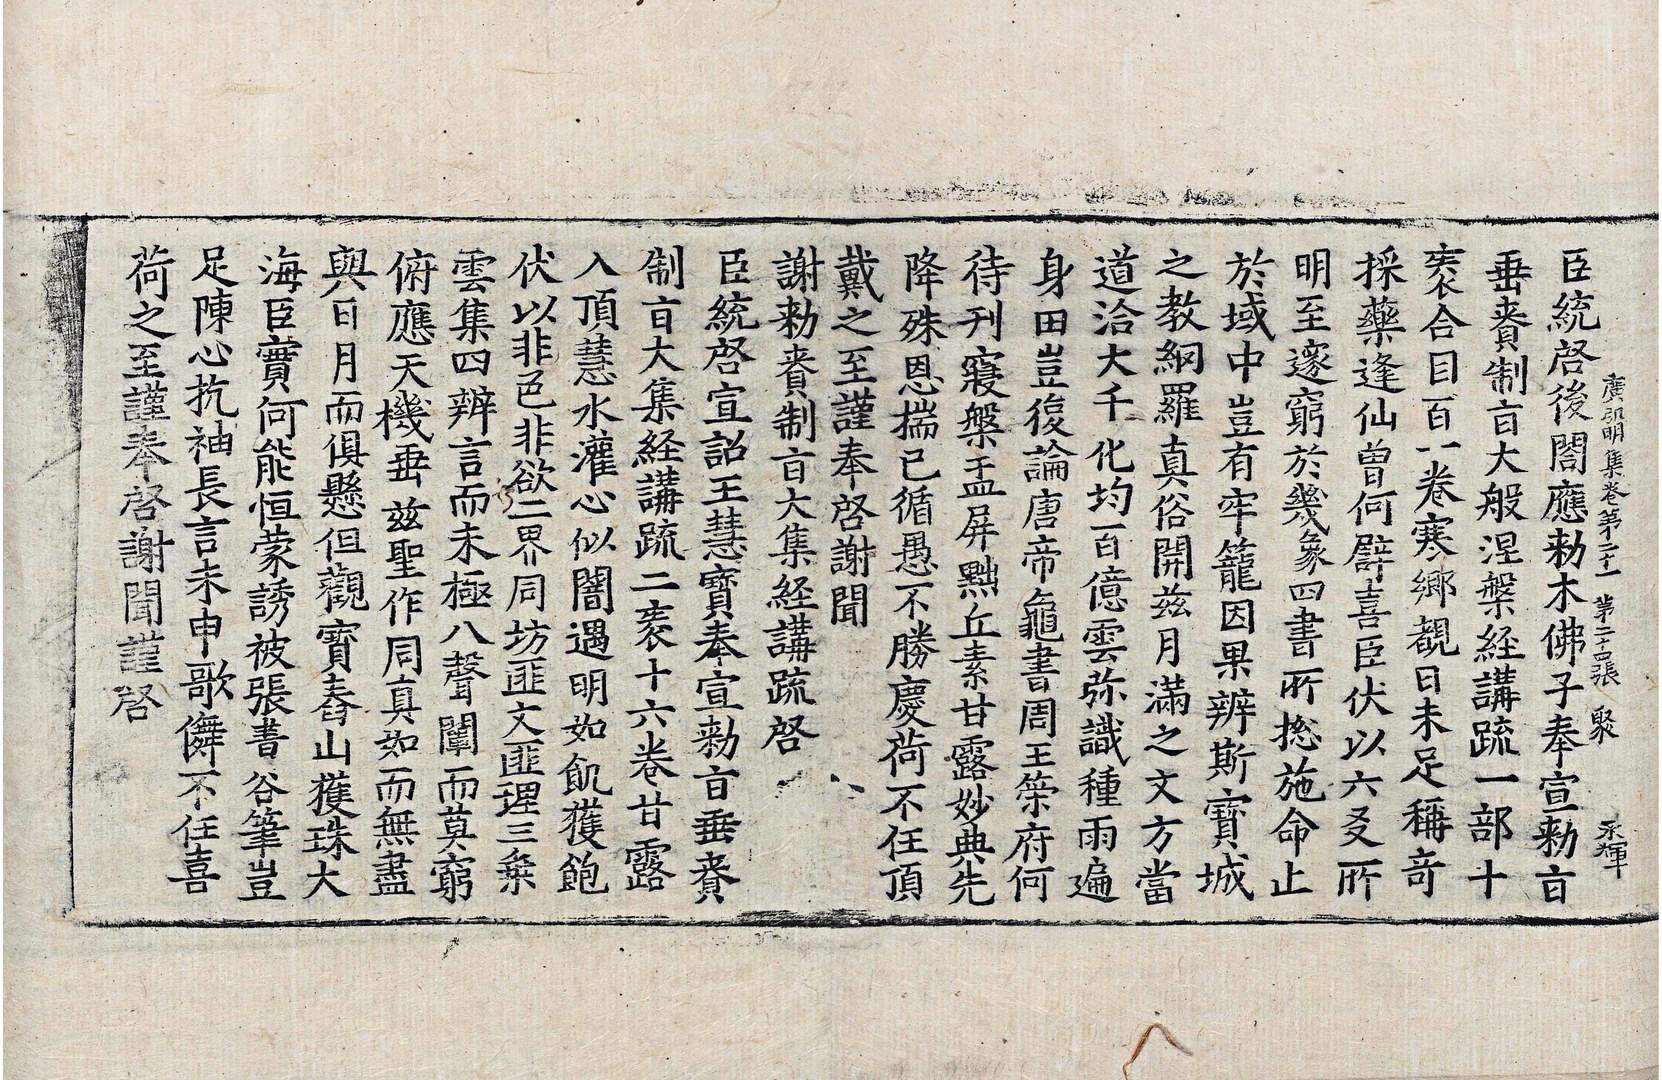 臣統啓後閤應勅木佛子奉宣勅㫖
垂賚制㫖大般涅槃経講䟽一部十
袠合目百一卷寒鄉覩日未足稱竒
採藥逢仙曾何譬喜臣伏以六爻所
明至邃窮於幾象四書所揔施命止
於域中豈有牢籠因果辨斯寶城
之教網羅真俗開兹月滿之文方當
道洽大千化均百億雲弥識種雨遍
身田豈復論唐帝龜書周王䇿府何
待刊寢槃盂屏黜丘素甘露妙典先
降殊恩揣已循愚不勝慶荷不任頂
戴之至謹奉啓謝聞
謝勅賚制㫖大集経講䟽啓
臣統啓宣詔王慧寶奉宣勅㫖垂賚
制㫖大集経講䟽二袠十六卷甘露
入頂慧水灌心似闇遇明如飢獲飽
伏以非色非欲二界同坊匪文匪理三乗
雲集四辨言而未極八聲闡而莫窮
俯應天機垂兹聖作同真如而無盡
與日月而俱懸但觀寶舂山獲珠大
海臣實何能恒蒙誘被張書谷筆豈
足陳心抗袖長言未申歌儛不任喜
荷之至謹奉啓謝聞謹啓
廣弘明集卷第二十一 第二十四張 聚 永輝